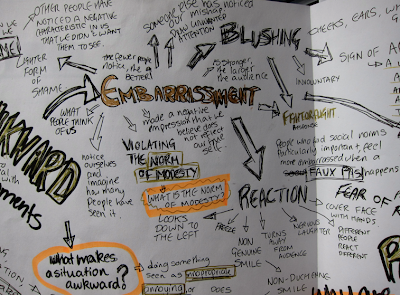 OTHER PEOPLE HAVE
NOTICED A NEGATIVE
CHARACTERISTIC IN US
THAT WE DIDN'T WANT
THEM TO SEE.
LIGHTER
FORM OF
SHAME
the fewer people
notice, the
better!
SOMEONE ELSE HAS NOTICED
our mishap;
UNWANTED
ATTENTION
BLUSHING
CHEEKS, EARS,
SIGN OF
INVOLUNTARY
the larger
the audience
EMBARRISSMENT
WHAT
PEOPLE THINK
OF US
made a negative
impression that we
believe does
not reflect
our true
self.
AWKWARD
moments
notice
ourselves
and
imagine
how many
People have
seen it.
VIOLATING
THE NORM
OF MODESTY
WHAT IS THE NORM
OF MODESTY?
People who hold social norms
particularly important, feel
more embarrassed when a
FAUX PAS happens
FEAR OF
REACTION
LOOKS
DOWN TO
THE LEFT
FREEZE
NON
GENUINE
SMILE
TURNS
AWAY FROM
AUDIENCE
NERVOUS
LAUGHTER
COVER FACE
WITH HANDS
DIFFERENT
PEOPLE
REACT
DIFFERENT
NON-DUCHENNE
SMILE
What makes
a situation
awkward?
doing something
seen as inappropriate
annoying or DOES